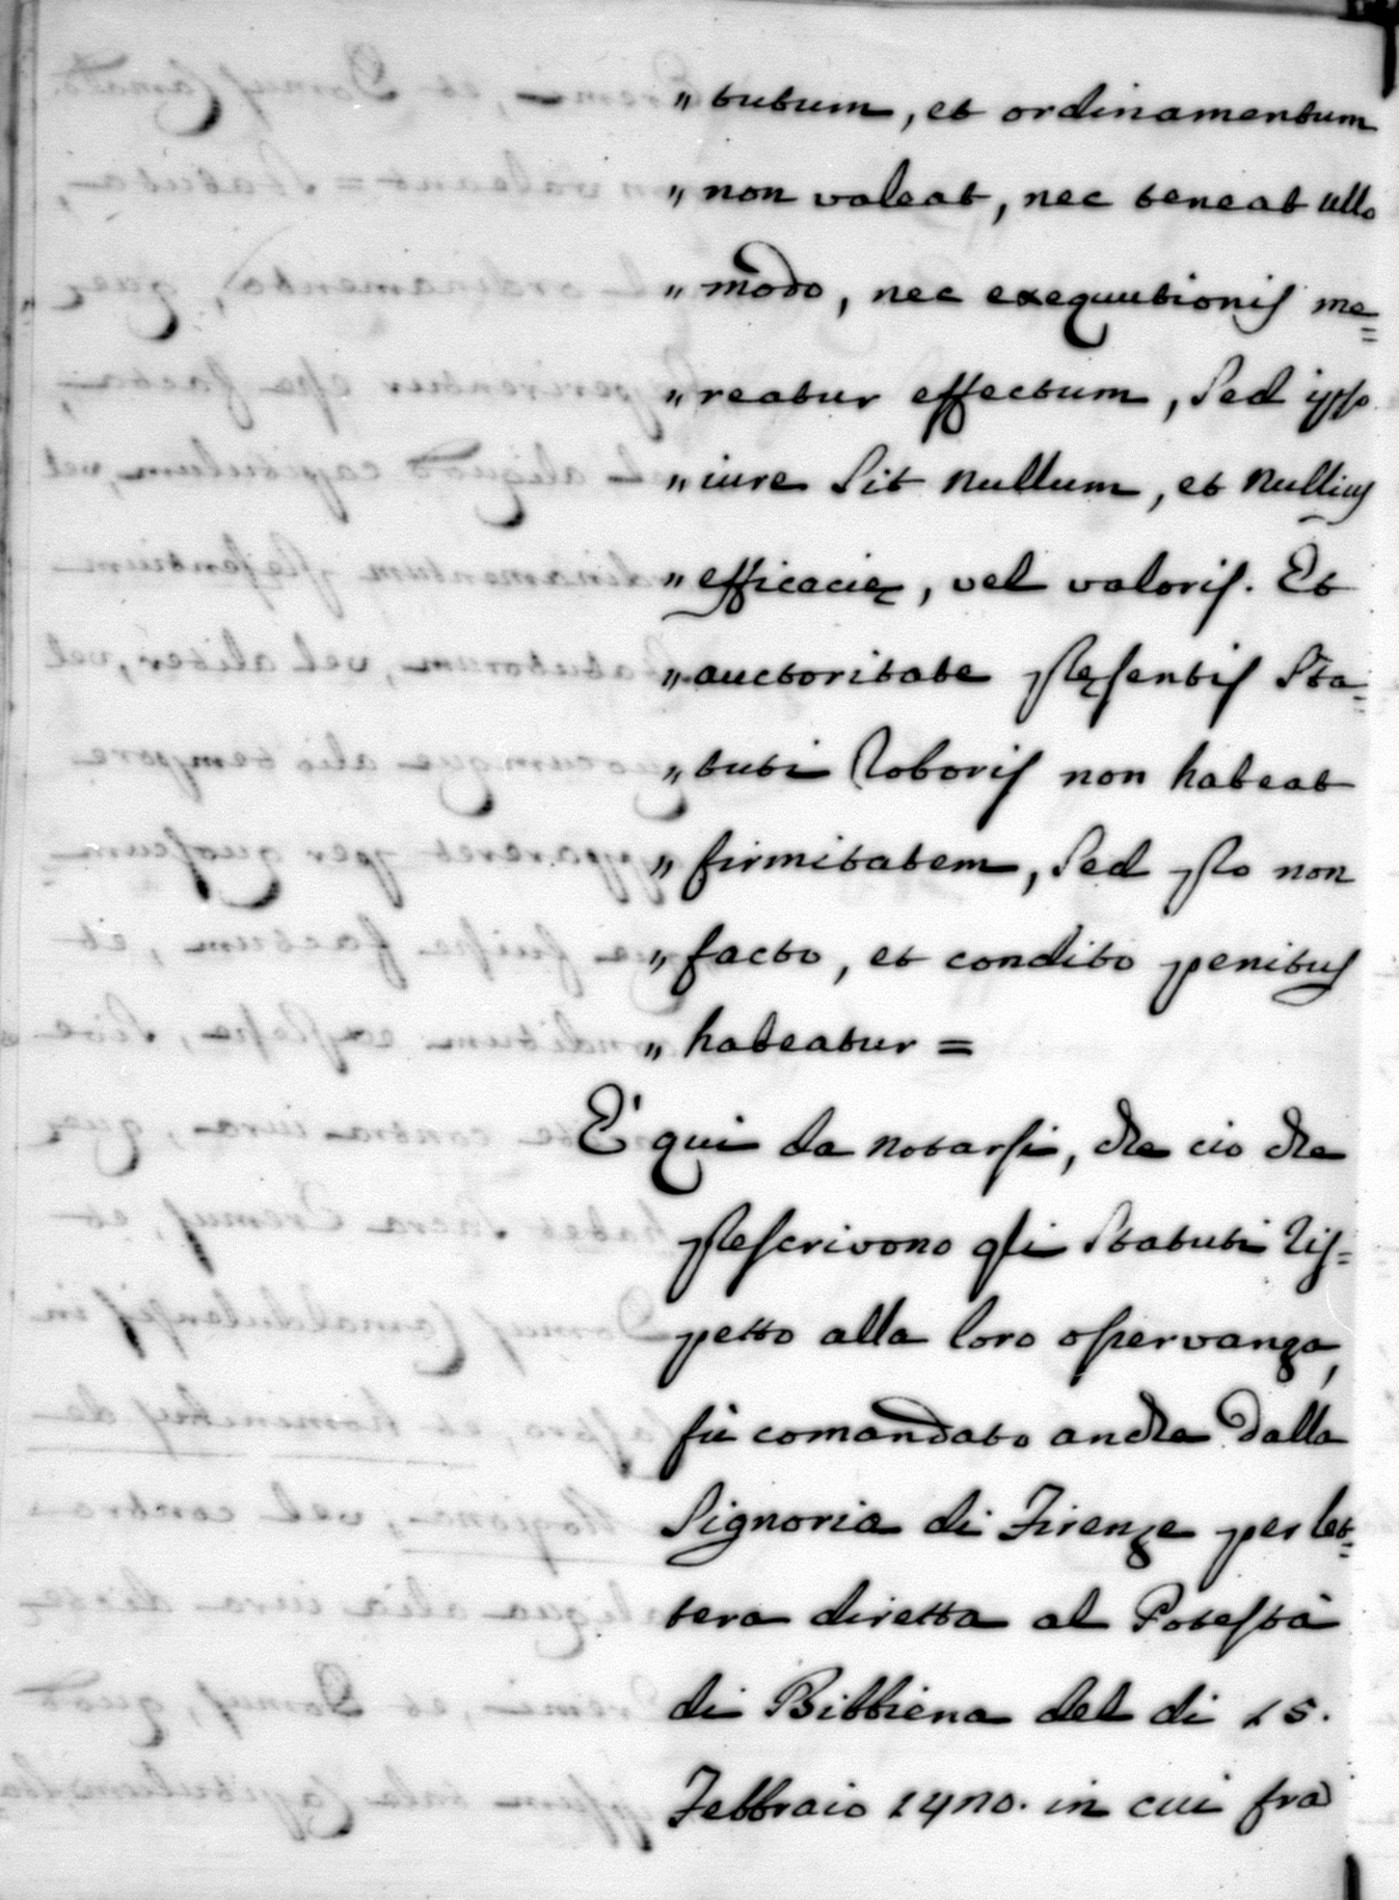 „ tutum, et ordinamentum
„ non valeat, nec teneat ullo
„ modo, nec exequutionis me=
„ reatur effectum, sed ipso
„ iure sit nullum, et nullius
„ efficacię, vel valoris. Et
„ auctoritate pręsentis Sta=
„ tuti Roboris non habeat
„ firmitatem, sed pro non
„ facto, et condito penitus
„ habeatur =
E' qui da notarsi, che cio che
prescrivono gli Statuti ris=
petto alla loro osservanza,
fù comandato anche dalla
Signoria di Firenze per let=
tera diretta al Potestà
di Bibbiena del di 15.
Febbraio in cui fra